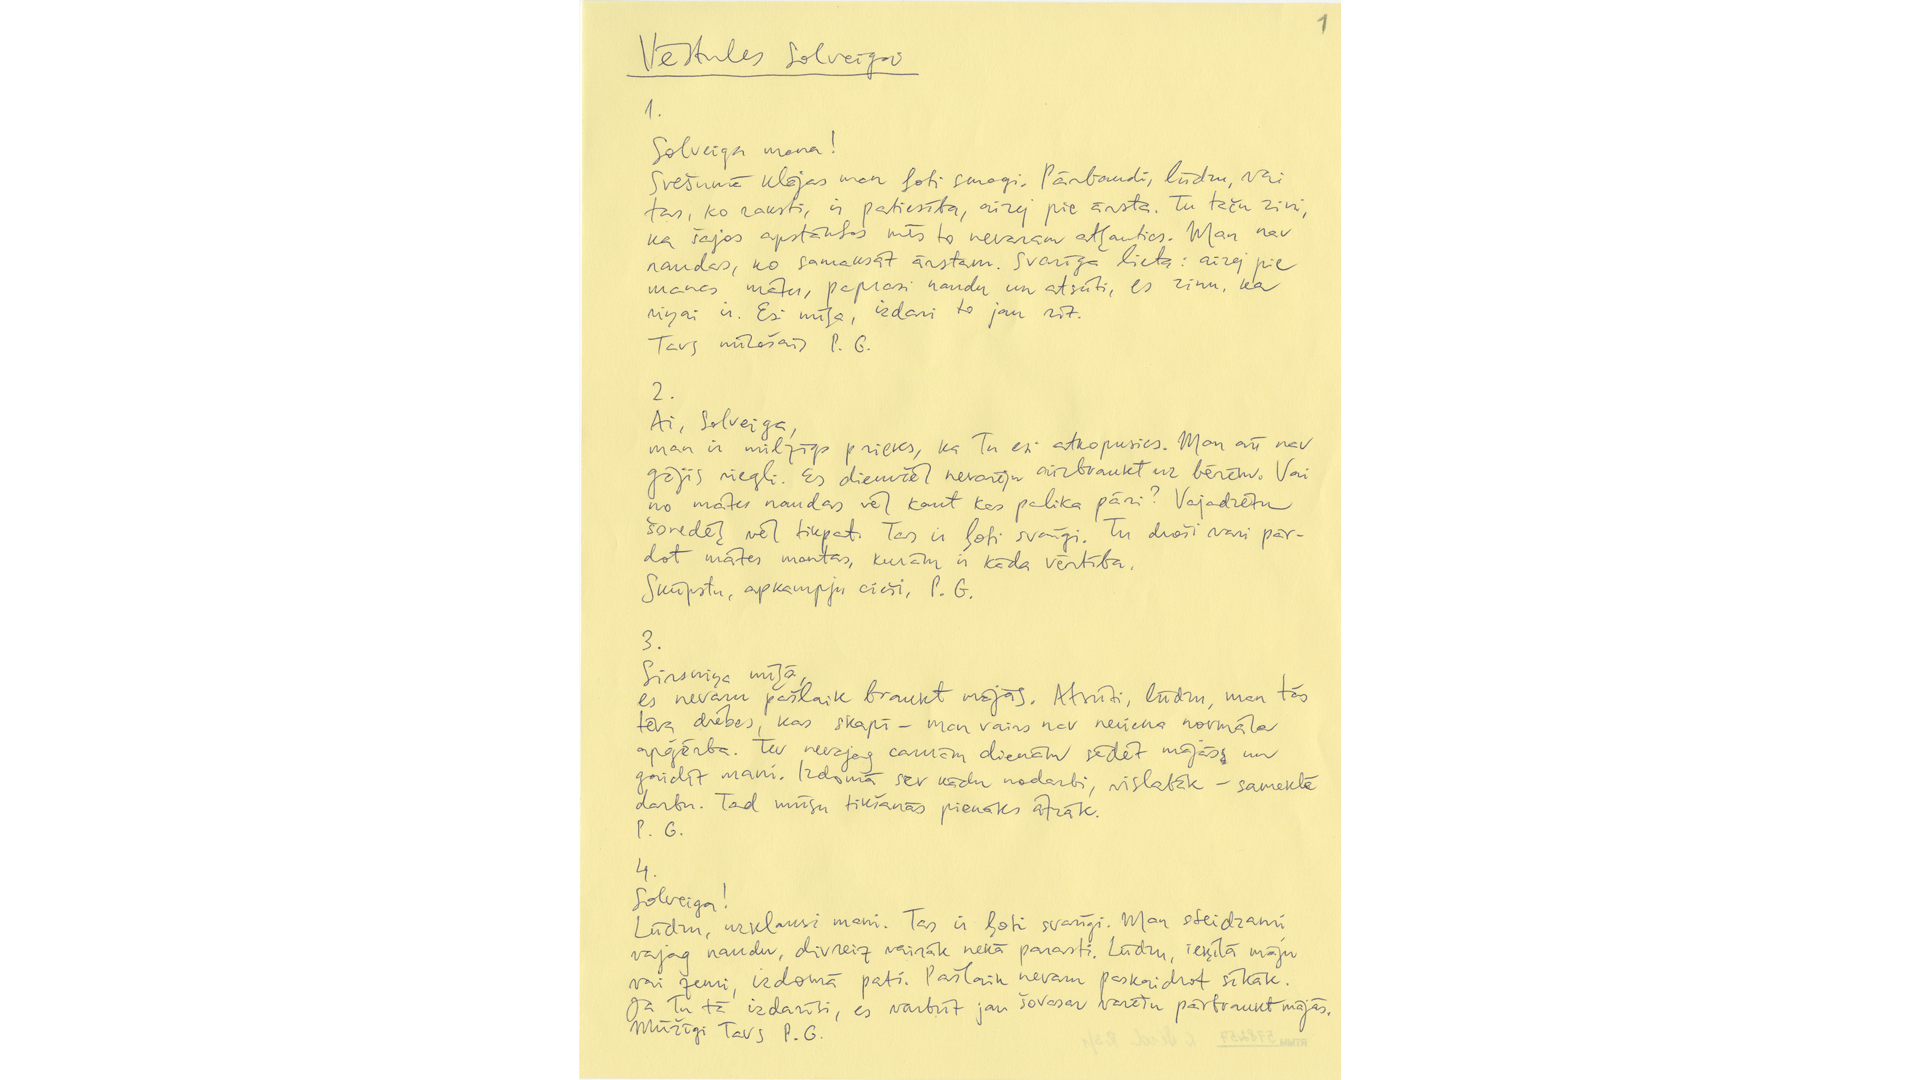 1
Vēstules Solveigai
1.
Solveiga mana!
Svešumā klājas man ļoti smagi. Pārbaudi, lūdzu, vai
tas, ko raksti, ir patiesība, aizej pie ārsta. Tu taču zini,
ka šajos apstākļos mēs to nevaram atļauties. Man nav
naudas, ko samaksāt ārstam. Svarīga lieta: aizej pie
manas mātes, paprasi naudu un atsūti, es zinu, ka
viņai ir. Esi mīļa, izdari to jau rīt.
Tavs mīlošais P. G.
2.
Ai, Solveiga,
man ir milzīgs prieks, ka Tu esi atkopusies. Man arī nav
gājis viegli. Es diemžēl nevarēju aizbraukt uz bērēm. Vai
no mātes naudas vēl kaut kas palika pāri? Vajadzētu
šoreděļ vēl tikpat. Tas ir ļoti svarīgi. Tu droši vari pār-
dot mātes mantas, kurām ir kāda vērtība.
Skūpstu, apkampju cieši, P. G.
3.
Sirsniņa mīļā,
es nevaru pašlaik braukt mājās. Atsūti, lūdzu, man tās
tēva drēbes, kas skapī – man vairs nav neviena normāla
apģērba. Tev nevajag caurām dienām sēdēt mājās un
gaidīt mani. Izdomā sev kādu nodarbi, vislabāk – sameklē
darbu. Tad mūsu tikšanās pienāks ātrāk.
P. G.
4.
Solveiga!
Lūdzu, uzklausi mani. Tas ir ļoti svarīgi. Man steidzami
vajag naudu, divreiz vairāk nekā parasti. Lūdzu, ieķīlā māju
vai zemi, izdomā pati. Pašlaik nevaru paskaidrot sīkāk.
Ja Tu tā izdarīsi, es varbūt jau šovasar varētu pārbraukt mājās.
Mūžīgi Tavs P. G.